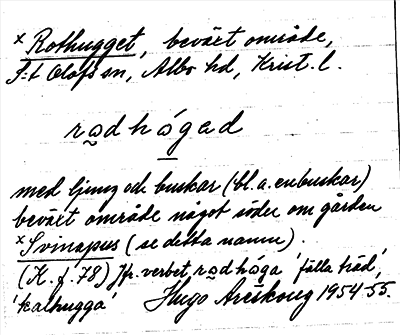 × Rothugget, beväxt område,
S:t Olofs sn, Albo hd, Krist. l.
rodhógad
med ljung och buskar (bl. a. enbuskar)
beväxt område något söder om gården
× Svinapus (se detta namn).
(K. f. 78) Jfr. verbet rodhóga 'fälla träd',
'kalhugga' Hugo Areskoug 1954-55.